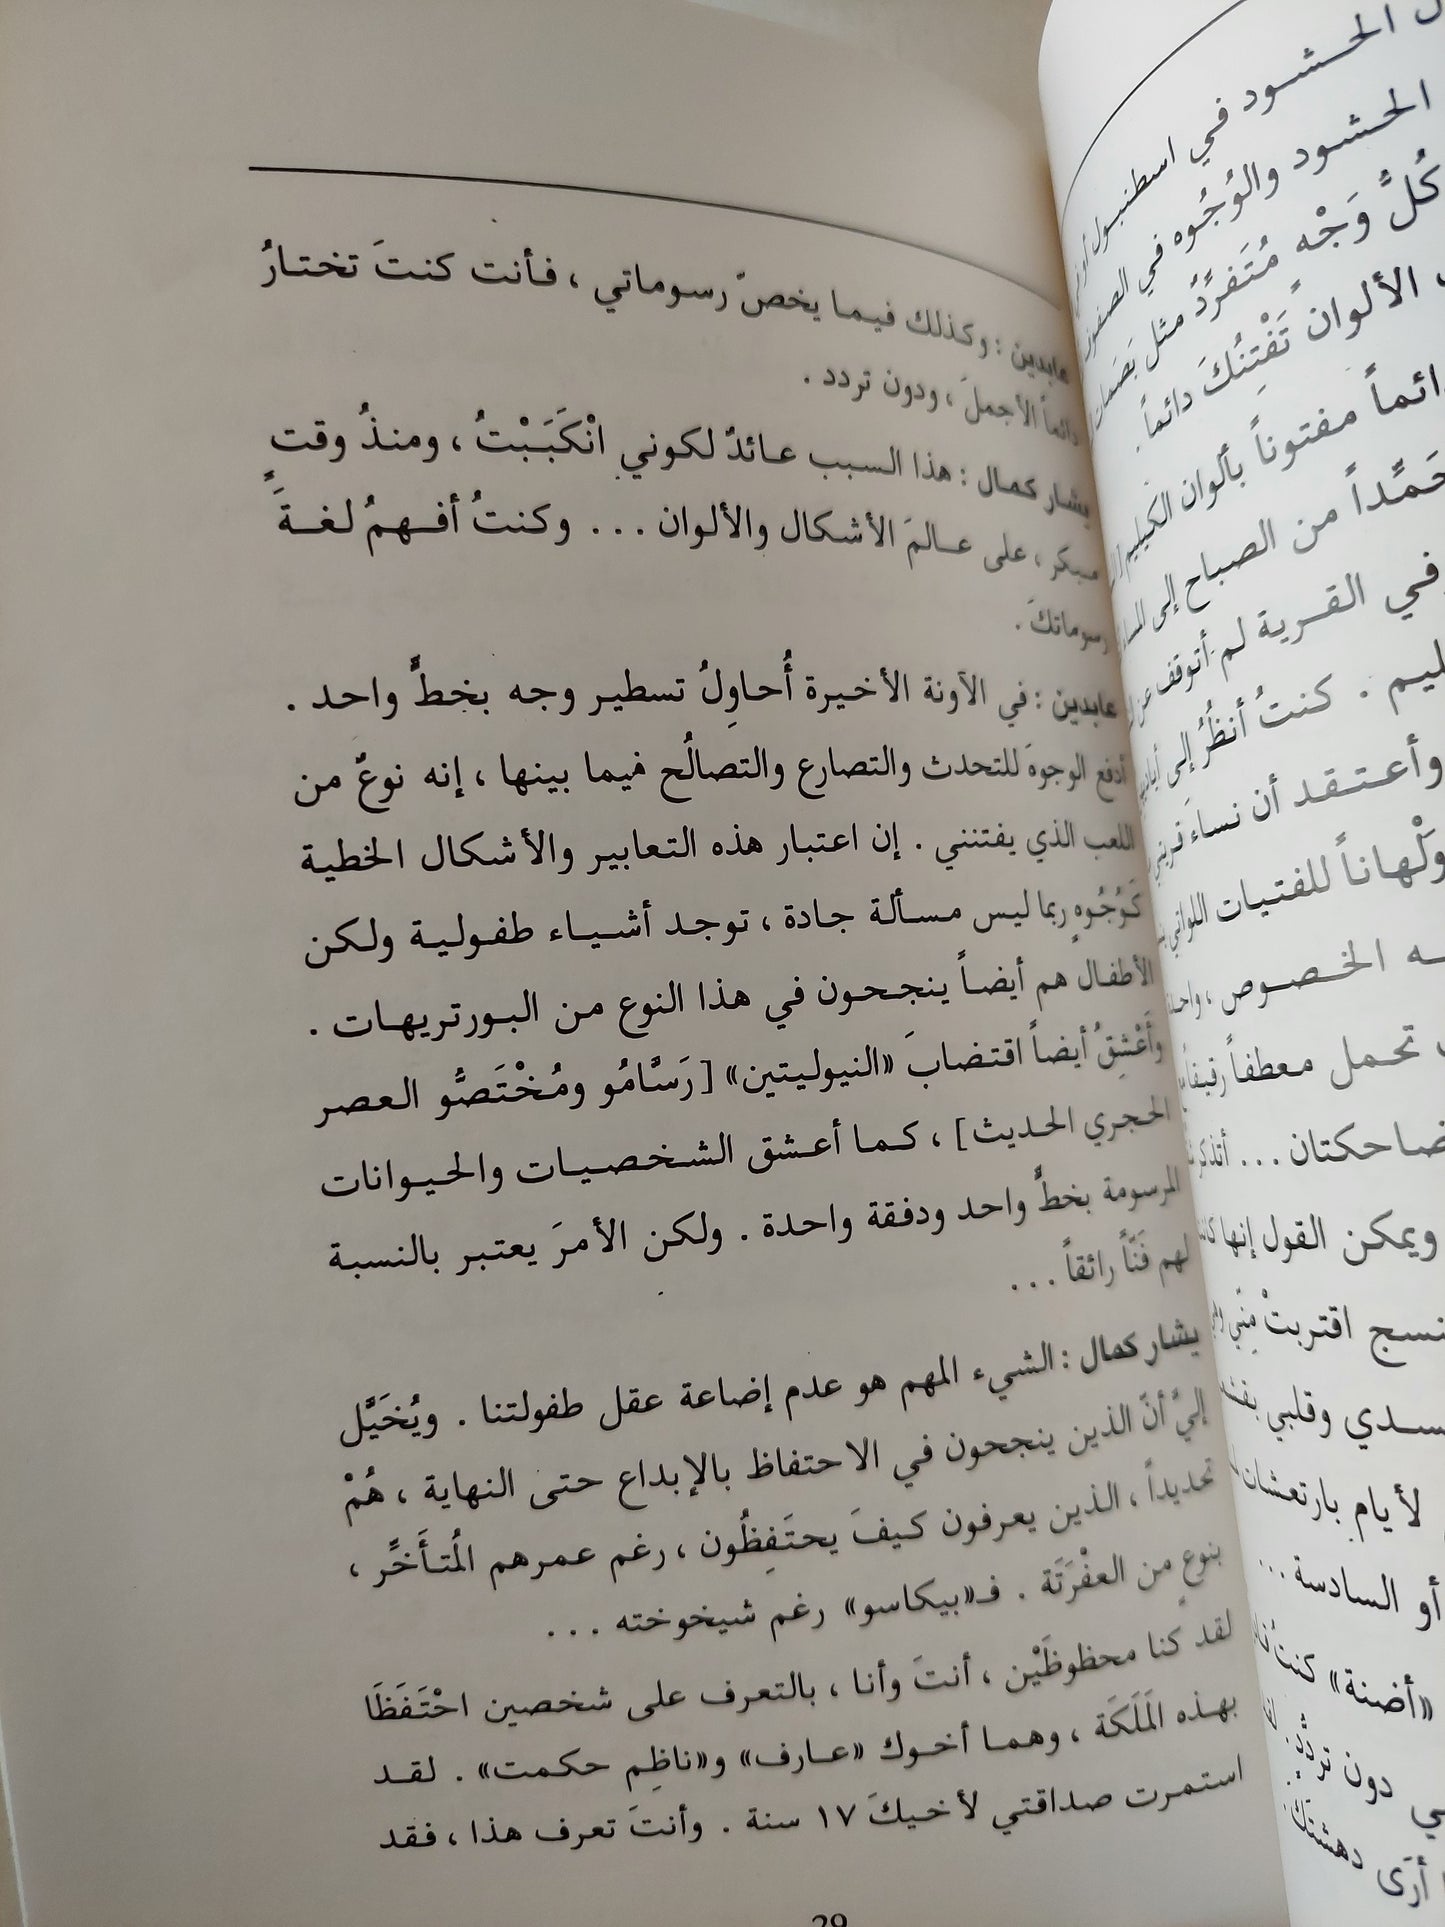 عابدين : وكذلك فيما يخصّ رسوماتي ، فأنت كنتَ تختارُ
دائماً الأجملَ ، ودون تردد .
يشار كمال : هذا السبب عائدٌ لكوني انْكَبَبْتُ ، ومنذُ وقتٍ
مبكر ، على عالمَ الأشكال والألوان ... وكنتُ أفهمُ لغةَ
رسوماتكَ .
عابدين : في الآونة الأخيرة أُحاوِلُ تسطير وجه بخطٍّ واحد .
أدفع الوجوهَ للتحدث والتصارع والتصالُح فيما بينها ، إنه نوعٌ من
اللعب الذي يفتنني . إن اعتبار هذه التعابير والأشكال الخطية
كَوُجُوهٍ ربما ليس مسألة جادة ، توجد أشياء طفولية ولكن
الأطفال هم أيضاً ينجحون في هذا النوع من البورتريهات .
وأَعْشِقُ أيضاً اقتضابَ «النيوليتين» [رَسَّامُو ومُخْتَصُّو العصر
الحجري الحديث] ، كما أعشق الشخصيات والحيوانات
المرسومة بخطٍّ واحد ودفقة واحدة . ولكن الأمرَ يعتبر بالنسبة
لهم فَنَّاً رائقاً ...
يشار كمال : الشيء المهم هو عدم إضاعة عقل طفولتنا . ويُخَيَّل
إليَّ أنّ الذين ينجحون في الاحتفاظ بالإبداع حتى النهاية ، هُمْ
تحديداً ، الذين يعرفون كيفَ يحتَفِظُون ، رغم عمرهم المُتأَخَّر ،
بنوعٍ من العفْرَتَة . فـ«بيكاسو» رغم شيخوخته ...
لقد كنا محظوظَيْن ، أنتَ وأنا ، بالتعرف على شخصين احْتَفَظَا
بهذه المَلَكَة ، وهما أخوك «عارف» و«ناظِم حكمت» . لقد
استمرت صداقتي لأخيكَ ١٧ سنة . وأنتَ تعرف هذا ، فقد
29
الحشود في اسطنبول
الحشود والوُجُوه في
كُلَّ وَجْهٍ مُتَفرِّدٌ مثل بَصَمات
الألوان تَفْتِنُكَ دائماً .
مفتوناً بألوان الكيليم
من الصباح إلى
القرية لم أتوقف عن
كنتُ أنظُرُ إلى
وأعتقد أن نساءَ قريتي
وَلْهاناً للفتيات اللواتي
الخصوص ، واحدة
تحمل معطفاً رقيقاً
ضاحكتان ... أتذكر
ويمكن القول إنها كانت
اقتربتْ مِنّي وهي
وقلبي
لأيام بارتعشات
أو السادسة ...
«أضنة» كنتُ
دون تردُّدٍ .
أرَى دهشتكَ .